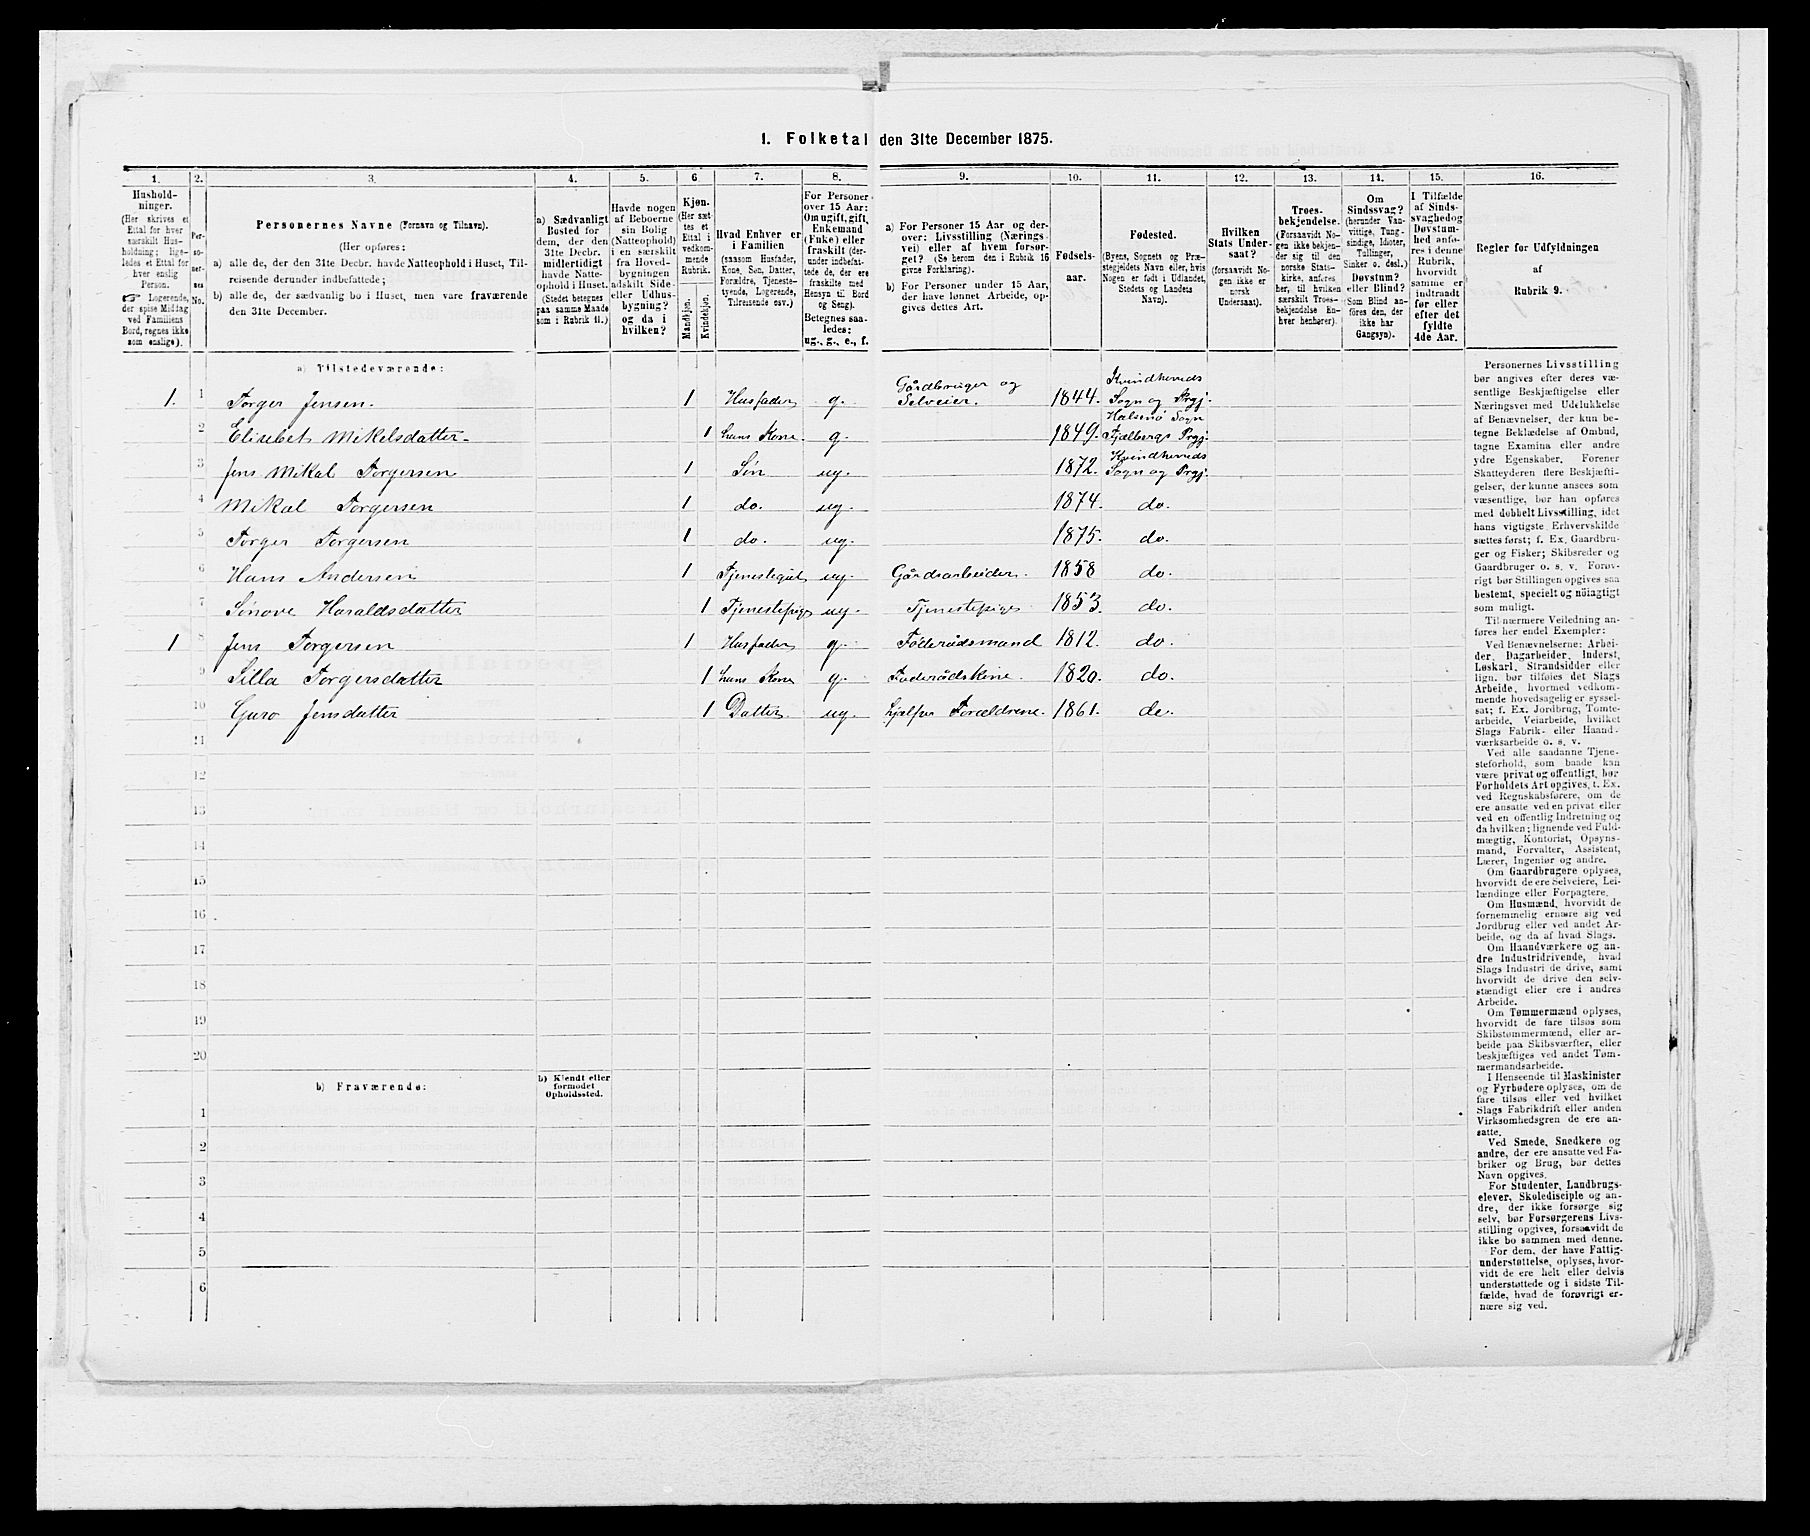 1. Folketal den 31te December 1875.
1. 2. 3. 4. 5. 6. 7. 8. 9. 10. 11. 12. 13. 14. 15. 16.
Hushold-
ninger.
(Her skrives et
Ettal for hver
særskilt Hus-
holdning; lige-
ledes et Ettal for
hver enslig
Person.
☞ Logerende,
der spise Middag
ved Familiens
Bord, regnes ikke
som enslige).
Per-
so-
ner-
nes
No.
Personernes Navne (Fornavn og Tilnavn).
(Her opføres:
a) alle de, der den 31te Decbr. havde Natteophold i Huset, Til-
reisende derunder indbefattede;
b) alle de, der sædvanlig bo i Huset, men vare fraværende
den 31te December.
a) Sædvanligt
Bosted for
dem, der den
31te Decbr.
midlertidigt
havde Natte-
ophold i Huset.
(Stedet betegnes
paa samme Maade
som i Rubrik 11.)
Havde nogen
af Beboerne
sin Bolig
(Natteophold)
i en særskilt
fra Hoved-
bygningen
adskilt Side-
eller Udhus-
bygning?
og da i
hvilken?
Kjøn.
(Her sæt-
tes et
Ettal i
vedkom-
mende
Rubrik.
Mandkjøn.
Kvindekjøn.
Hvad Enhver er
i Familien
(saasom Husfader,
Kone, Søn, Datter,
Forældre, Tjeneste-
tyende, Logerende,
Tilreisende osv.)
For Personer
over 15 Aar:
Om ugift, gift,
Enkemand
(Enke) eller
fraskilt (der-
under indbefat-
tede de, der ere
fraskilte med
Hensyn til Bord
og Seng).
Betegnes saa-
ledes:
ug., g., e., f.
a) For Personer 15 Aar og der-
over: Livsstilling (Nærings-
vei) eller af hvem forsør-
get? (Se herom den i Rubrik 16
givne Forklaring).
b) For Personer under 15 Aar,
der have lønnet Arbeide, op-
gives dettes Art.
Fødsels-
aar.
Fødested.
(Byens, Sognets og Præ-
stegjeldets Navn eller, hvis
Nogen er født i Udlandet,
Stedets og Landets
Navn).
Hvilken
Stats Under-
saat?
(forsaavidt No-
gen ikke er
norsk
Undersaat).
Troes-
bekjendelse.
(Forsaavidt No-
gen ikke bekjen-
der sig til den
norske Stats-
kirke, anføres
her, til hvilken
særskilt Troes-
bekjendelse En-
hver henhører).
Om
Sindssvag?
(herunder Van-
vittige, Tung-
sindige, Idioter,
Tullinger,
Sinker o. desl.)
Døvstum?
eller Blind?
(Som Blind an-
føres den, der
ikke har
Gangsyn).
I Tilfælde
af Sinds-
svaghed og
Døvstum-
hed anfø-
res i denne
Rubrik,
hvorvidt
samme er
indtraadt
før eller
efter det
fyldte
4de Aar.
Regler for Udfyldningen
af
Rubrik 9.
a) Tilstedeværende:
1. 1 Torger Jensen. 1 Husfader g. Gårdbruger og Selveier. 1844. Kvindherreds Sogn og Prgj.
2 Elisebet Mikelsdatter. 1 hans Kone g. 1849. Halsenø Sogn Fjælbergs Prgj.
3 Jens Mikal Torgersen 1 Søn ug. 1872. Kvindherreds Sogn og Prgj.
4 Mikal Torgersen 1 do. ug. 1874. do.
5 Torger Torgersen 1 do. ug. 1875. do.
6 Hans Andersen 1 Tjenestegut ug. Gårdsarbeider. 1858 do.
7 Sinove Haraldsdatter 1 Tjenestepige ug. Tjenestepige 1853. do.
1 8 Jens Torgersen 1 Husfader g. Føderådsmand 1812. do.
9 Silla Torgersdatter 1 hans Kone g. Føderådskone. 1820. do.
10 Guro Jensdatter 1 Datter ug. hjælper Forældrene. 1861. do.
11
12
13
14
15
16
17
18
19
20
b) Fraværende:
b) Kjendt eller
formodet
Opholdssted.
1
2
3
4
5
6
Personernes Livsstilling
bør angives efter deres væ-
sentlige Beskjæftigelse eller
Næringsvei med Udelukkelse
af Benævnelser, der kun be-
tegne Beklædelse af Ombud,
tagne Examina eller andre
ydre Egenskaber. Forener
Skatteyderen flere Beskjæfti-
gelser, der kunne ansees som
væsentlige, bør han opføres
med dobbelt Livsstilling, idet
hans vigtigste Erhvervskilde
sættes først; f. Ex. Gaardbru-
ger og Fisker; Skibsreder og
Gaardbruger o. s. v. Forøv-
rigt bør Stillingen opgives saa
bestemt, specielt og nøiagtigt
som muligt.
Til nærmere Veiledning an-
føres her endel Exempler:
Ved Benævnelserne: Arbei-
der, Dagarbeider, Inderst,
Løskarl, Strandsidder eller
lign. bør tilføies det Slags
Arbeide, hvormed vedkom-
mende hovedsagelig er syssel-
sat; f. Ex. Jordbrug, Tomte-
arbeide, Veiarbeide, hvilket
Slags Fabrik- eller Haand-
værksarbeide o. s. v.
Ved alle saadanne Tjene-
steforhold, som baade kan
være privat og offentligt, bør
Forholdets Art opgives, t. Ex.
ved Regnskabsførere, om de
ere ansatte ved en privat eller
ved en offentlig Indretning og
da hvilken; lignende ved Fuld-
mægtig, Kontorist, Opsyns-
mand, Forvalter, Assistent,
Lærer, Ingeniør og andre.
Om Gaardbrugere oplyses,
hvorvidt de ere Selveiere, Lei-
lændinge eller Forpagtere.
Om Husmænd, hvorvidt de
fornemmelig ernære sig ved
Jordbrug eller ved andet Ar-
beide, og da af hvad Slags.
Om Haandværkere og an-
dre Industridrivende, hvad
Slags Industri de drive, samt
hvorvidt de drive den selv-
stændigt eller ere i andres
Arbeide.
Om Tømmermænd oplyses,
hvorvidt de fare tilsøs som
Skibstømmermænd, eller ar-
beide paa Skibsværfter, eller
beskjæftiges ved andet Tøm-
mermandsarbeide.
I Henseende til Maskinister
og Fyrbødere oplyses, om de
fare tilsøs eller ved hvilket
Slags Fabrikdrift eller anden
Virksomhedsgren de ere an-
satte.
Ved Smede, Snedkere og
andre, der ere ansatte ved Fa-
briker og Brug, bør dettes
Navn opgives.
For Studenter, Landbrugs-
elever, Skoledisciple og an-
dre, der ikke forsørge sig
selv, bør Forsørgerens Livs-
stilling opgives, forsaavidt de
ikke bo sammen med denne.
For dem, der have Fattig-
understøttelse, oplyses, hvor-
vidt de ere helt eller delvis
understøttede og i sidste Til-
fælde, hvad de forøvrigt er-
nære sig ved.